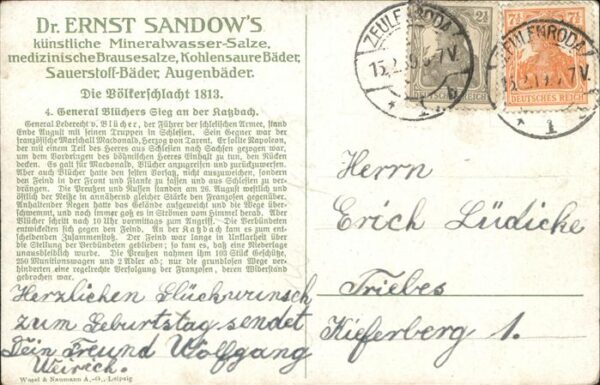 Dr. ERNST SANDOW'S
künstliche Mineralwasser-Salze,
medizinische Brausesalze, Kohlensaure Bäder,
Sauerstoff-Bäder, Augenbäder.
Die Völkerschlacht 1813.
4. General Blüchers Sieg an der Katzbach.
General Leberecht v. Blücher, der Führer der schlesischen Armee, stand
Ende August mit seinen Truppen in Schlesien. Sein Gegner war der
französische Marschall Macdonald, Herzog von Tarent. Er sollte Napoleon,
der mit einem Teil des Heeres aus Schlesien nach Sachsen gezogen war,
um dem Vordringen des böhmischen Heeres Einhalt zu tun, den Rücken
decken. Es galt für Macdonald, Blücher anzugreifen und zurückzuwersen.
Aber auch Blücher hatte den festen Vorsatz, nicht auszuweichen, sondern
den Feind in der Front und Flanke zu fassen und aus Schlesien zu ver-
drängen. Die Preußen und Russen standen am 26. August westlich und
östlich der Neiße in annähernd gleicher Stärke den Franzosen gegenüber.
Anhaltender Regen hatte das Gelände aufgeweicht und die Wege über-
schwemmt, und noch immer goß es in Strömen vom Himmel herab. Aber
Blücher schritt nach 10 Uhr vormittags zum Angriff. Die Verbündeten
entwickelten sich gegen den Feind. An der Katzbach kam es zum ent-
scheidenden Zusammenstoß. Der Feind war lange in Unklarheit über
die Stellung der Verbündeten geblieben; so kam es, daß eine Niederlage
unausbleiblich wurde. Die Preußen nahmen ihm 103 Stück Geschütze,
250 Munitionswagen und 2 Adler ab; nur die grundlosen Wege ver-
hinderten eine regelrechte Verfolgung der Franzosen, deren Widerstand
gebrochen war.
Herzlichen Glückwunsch
zum Geburtstag sendet
Dein Freund Wolfgang
Weirich.
Wezel & Naumann A.-G., Leipzig
ZEULENRODA
2½ 2½
DEUTSCHES REICH
ZEULENRODA
7½ 7½
DEUTSCHES REICH
Herrn
Erich Lüdicke
Triebes
Kieferberg 1.